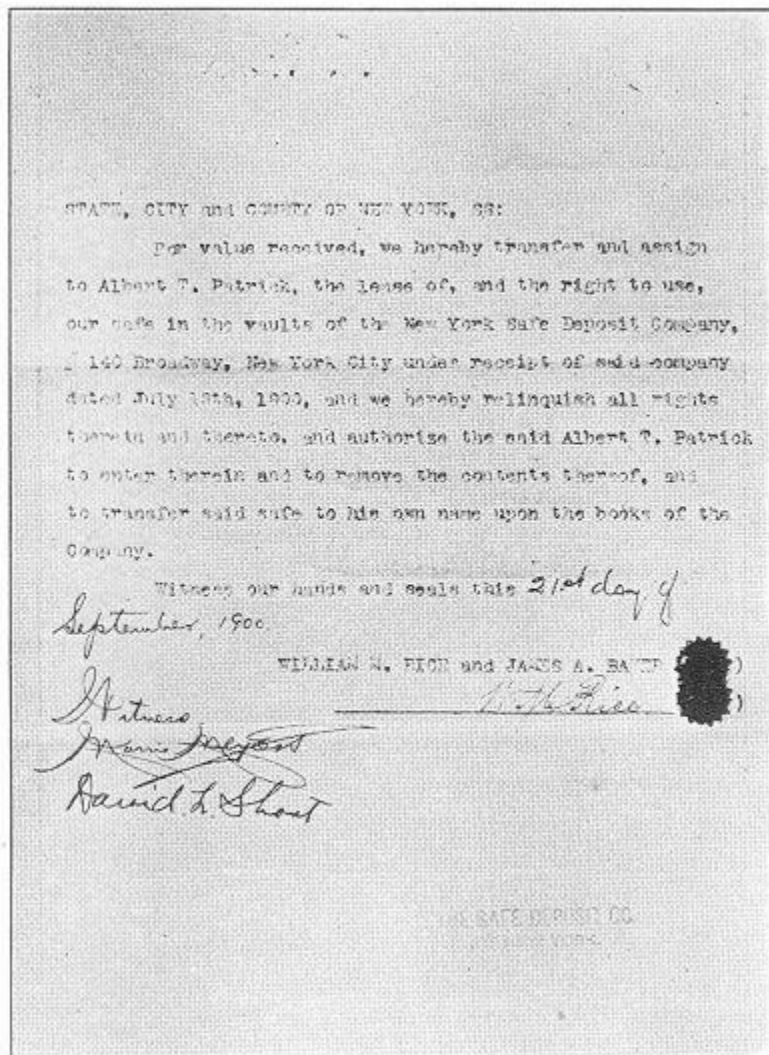 STATE, CITY and COUNTY OF NEW YORK, SS:
For value received, we hereby transfer and assign
to Albert T. Patrick, the lease of, and the right to use,
our safe in the vaults of the New York Safe Deposit Company,
140 Broadway, New York City under receipt of said company
dated July 18th, 1900, and we hereby relinquish all rights
therein and thereto, and authorize the said Albert T. Patrick
to enter therein and to remove the contents thereof, and
to transfer said safe to his own name upon the books of the
Company.
Witness our hands and seals this 21st day of
September, 1900.
WILLIAM M. RICE and JAMES A. BAKER )
W. M. Rice )
Witness
Morris Meyers
David. L. Short